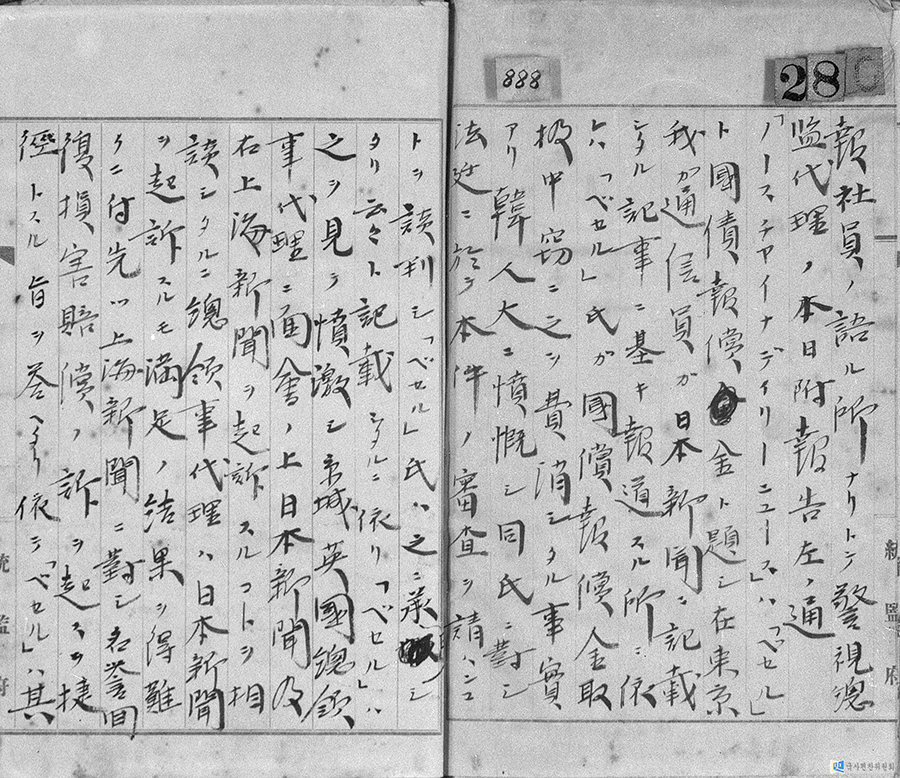 888
28
報社員ノ語ル所ナリトテ警視總
監代理ノ本日附報告左ノ通
「ノースチヤイナデイリーニユース」ハ「ベセル」
ト國債報償金ト題シ在東京
我カ通信員ガ日本新聞ニ記載
シタル記事ニ基キ報道スル所ニ依
レハ「ベセル」氏ガ國償報償金取
扱中窃ニ之ヲ費消シタル事實
アリ韓人大ニ憤慨シ同氏ニ對シ
法廷ニ於テ本件ノ審査ヲ請ハンコ
トヲ談判シ「ベセル」氏ハ之ニ承シ
タリ云々ト記載シタルニ依リ「ベセル」ハ
之ヲ見テ憤激シ京城英國總領
事代理ニ面會ノ上日本新聞及
右上海新聞ヲ起訴スルコトヲ相
談シタルニ總領事代理ハ日本新聞
ヲ起訴スルモ満足ノ結果ヲ得難
キニ付先ツ上海新聞ニ對シ名誉回
復損害賠償ノ訴ヲ起スヲ捷
徑トスル旨ヲ答ヘタリ依テ「ベセル」ハ其
統監府
統監府
국사편찬위원회